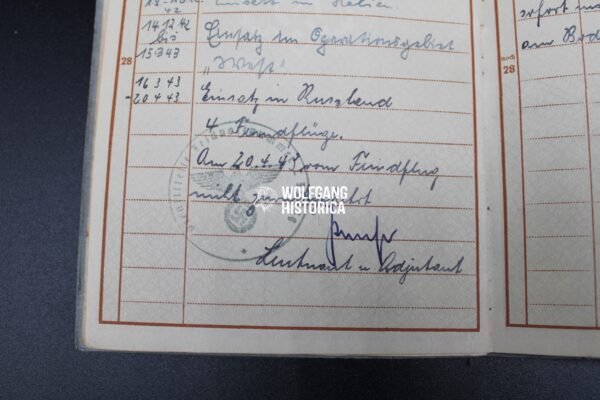 Einsatz in Italien.
42
14.12.42
bis
15.3.43
Einsatz im Operationsgebiet
„West“
28
16.3.43
-20.4.43
Einsatz in Russland
4 Feindflüge.
Am 20.4.43 vom Feindflug
nicht zurückgekehrt
WOLFGANG
HISTORICA
Leutnant u. Adjutant
sofort
am Bod
noch
28